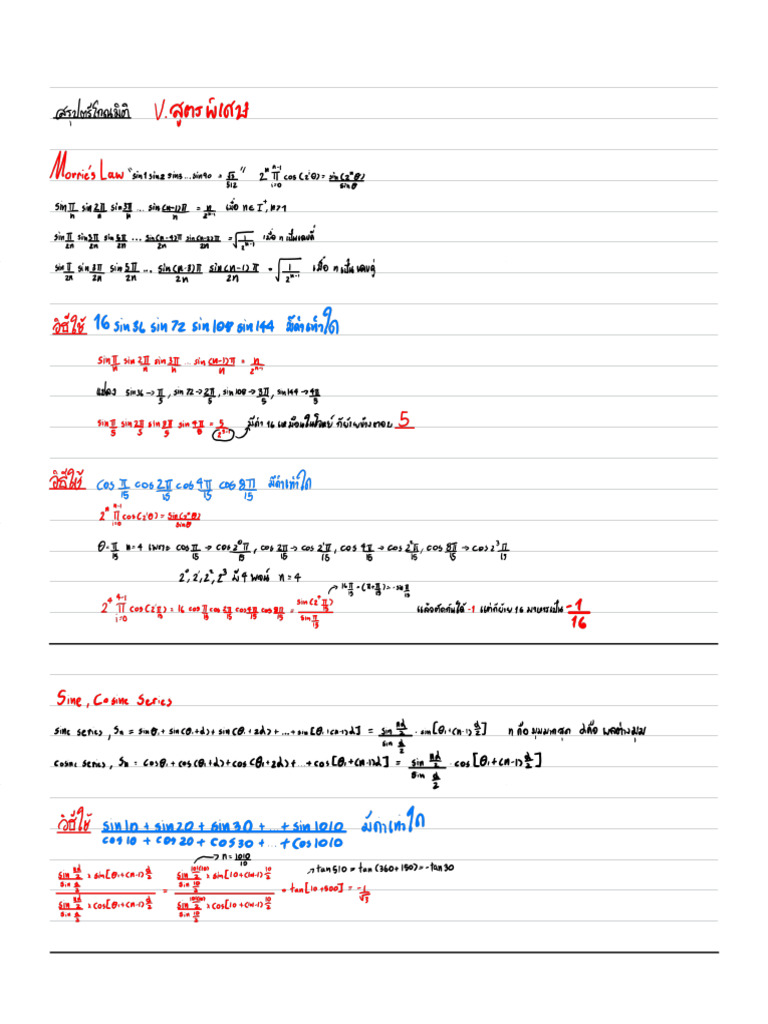 สรุปตรีโกณมิติ V. สูตรพิเศษ
Morrie's Law "sin1 sin2 sin3 ... sin90 = √5/512" 2ⁿ ∏(i=0, n-1) cos(2ⁱθ) = sin(2ⁿθ)/sinθ
sin π/n sin 2π/n sin 3π/n ... sin (n-1)π/n = n/2ⁿ⁻¹ เมื่อ n ∈ I⁺, n>1
sin π/2n sin 3π/2n sin 5π/2n ... sin(n-4)π/2n sin(n-2)π/2n = √(1/2ⁿ⁻¹) เมื่อ n เป็นเลขคี่
sin π/2n sin 3π/2n sin 5π/2n ... sin(n-3)π/2n sin(n-1)π/2n = √(1/2ⁿ⁻¹) เมื่อ n เป็นเลขคู่
วิธีใช้ 16 sin36 sin72 sin108 sin144 มีค่าเท่าใด
sin π/n sin 2π/n sin 3π/n ... sin (n-1)π/n = n/2ⁿ⁻¹
แปลง sin36 → π/5, sin72 → 2π/5, sin108 → 3π/5, sin144 → 4π/5
sin π/5 sin 2π/5 sin 3π/5 sin 4π/5 = 5/2⁵⁻¹ มีค่า 16 เหมือนในโจทย์ ก็ย้ายข้างตอบ 5
วิธีใช้ cos π/15 cos 2π/15 cos 4π/15 cos 8π/15 มีค่าเท่าใด
2ⁿ ∏(i=0, n-1) cos(2ⁱθ) = sin(2ⁿθ)/sinθ
θ = π/15 n=4 เพราะ cos π/15 → cos 2⁰π/15, cos 2π/15 → cos 2¹π/15, cos 4π/15 → cos 2²π/15, cos 8π/15 → cos 2³π/15
2⁰, 2¹, 2², 2³ มี 4 พจน์ n = 4
16π/15 = (π+π/15) = -sin π/15
2⁴ ∏(i=0, 4-1) cos(2ⁱπ/15) = 16 cos π/15 cos 2π/15 cos 4π/15 cos 8π/15 = sin(2⁴π/15)/sin π/15 แล้วตัดกันได้ -1 แต่ก็ย้าย 16 มาหารเป็น -1/16
Sine, Cosine Series
sine series, Sₙ = sinθ₁ + sin(θ₁+d) + sin(θ₁+2d) + ... + sin[θ₁+(n-1)d] = sin nd/2 / sin d/2 · sin[θ₁+(n-1)d/2] n คือมุมแรกสุด d คือ ผลต่างมุม
cosine series, Sₙ = cosθ₁ + cos(θ₁+d) + cos(θ₁+2d) + ... + cos[θ₁+(n-1)d] = sin nd/2 / sin d/2 · cos[θ₁+(n-1)d/2]
วิธีใช้ sin10 + sin20 + sin30 + ... + sin1010 / cos10 + cos20 + cos30 + ... + cos1010 มีค่าเท่าใด
n = 1010/10
tan510 = tan(360+150) = -tan30
sin nd/2 / sin d/2 × sin[θ₁+(n-1)d/2] / sin nd/2 / sin d/2 × cos[θ₁+(n-1)d/2] = sin 101(10)/2 / sin 10/2 × sin[10+(n-1)10/2] / sin 101(10)/2 / sin 10/2 × cos[10+(n-1)10/2] = tan[10+500] = -1/√3